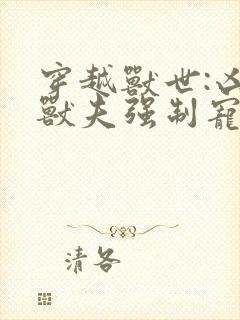 穿越獸世:凶
獸夫强制寵
清各